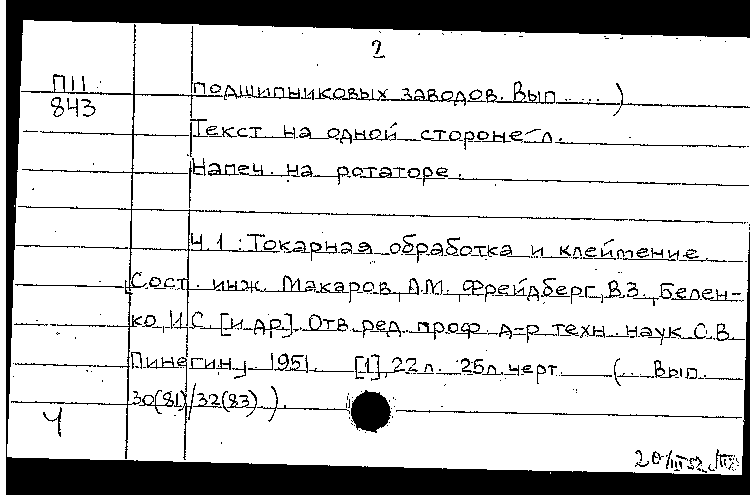 2
П11
843
подшипниковых заводов. Вып .....)
Текст на одной стороне л.
Напеч. на ротаторе.
Ч.1: Токарная обработка и клеймение.
Сост. инж. Макаров, А.М., Фрейдберг, В.З., Белен-
ко, И.С. [и др]. Отв. ред. проф. д-р техн. наук С.В.
Пинегин, 1951. [1], 22 л. 25л. черт. (... Вып.
30(81)/32(83)).
Ч
20/III 52